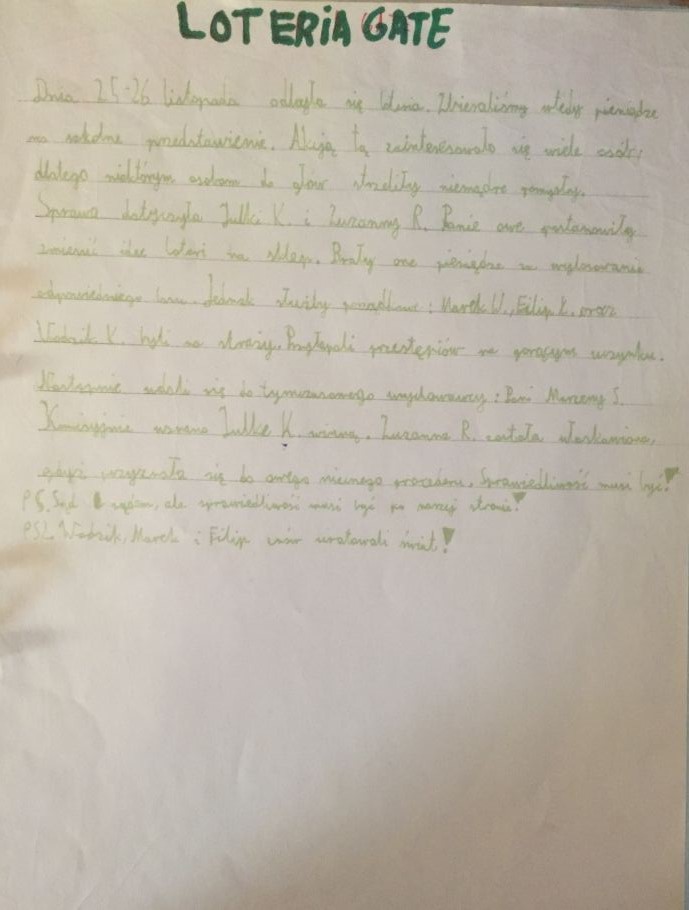 LOTERIA GATE
Dnia 25-26 listopada odbyła się loteria. Zbieraliśmy wtedy pieniądze
na szkolne przedstawienie. Akcją tą zainteresowało się wiele osób,
dlatego niektórym osobom do głów strzeliły niemądre pomysły.
Sprawa dotyczyła Julki K. i Zuzanny R. Panie owe postanowiły
zmienić idee loteri na sklep. Brały one pieniądze za wylosowanie
odpowiedniego losu. Jednak służby porządkowe: Marek W., Filip Z. oraz
Władzik K. byli na straży. Przyłapali przestępców na gorącym uczynku.
Następnie udali się do tymczasowego wychowawcy: Pani Marzeny S.
Komisyjnie uznano Julkę K. winną. Zuzanna R. została ułaskawiona,
gdyż przyznała się do owego niecnego procederu. Sprawiedliwość musi być!
PS. Sąd sądem, ale sprawiedliwość musi być po naszej stronie!
PS2. Władzik, Marek i Filip znów uratowali świat!